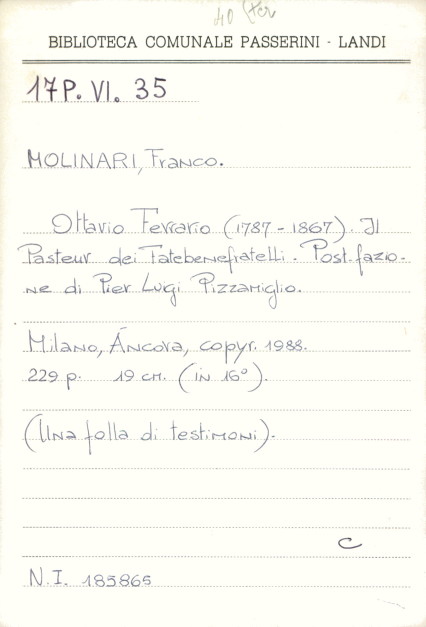 40 ter
BIBLIOTECA COMUNALE PASSERINI - LANDI
17P. VI. 35
MOLINARI, Franco.
Ottavio Ferrario (1787-1867). Il
Pasteur dei Fatebenefratelli. Postfazio-
ne di Pier Luigi Pizzamiglio.
Milano, Áncora, copyr. 1988.
229 p. 19 cm. (in 16°).
(Una folla di testimoni).
C
N.I. 185865